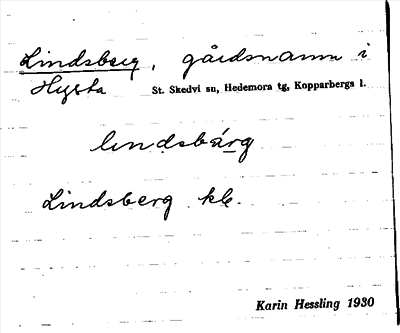 Lindsberg, gårdsnamn i
Hysta St. Skedvi sn, Hedemora tg, Kopparbergs l.
lindsbárg
Lindsberg kb.
Karin Hessling 1930